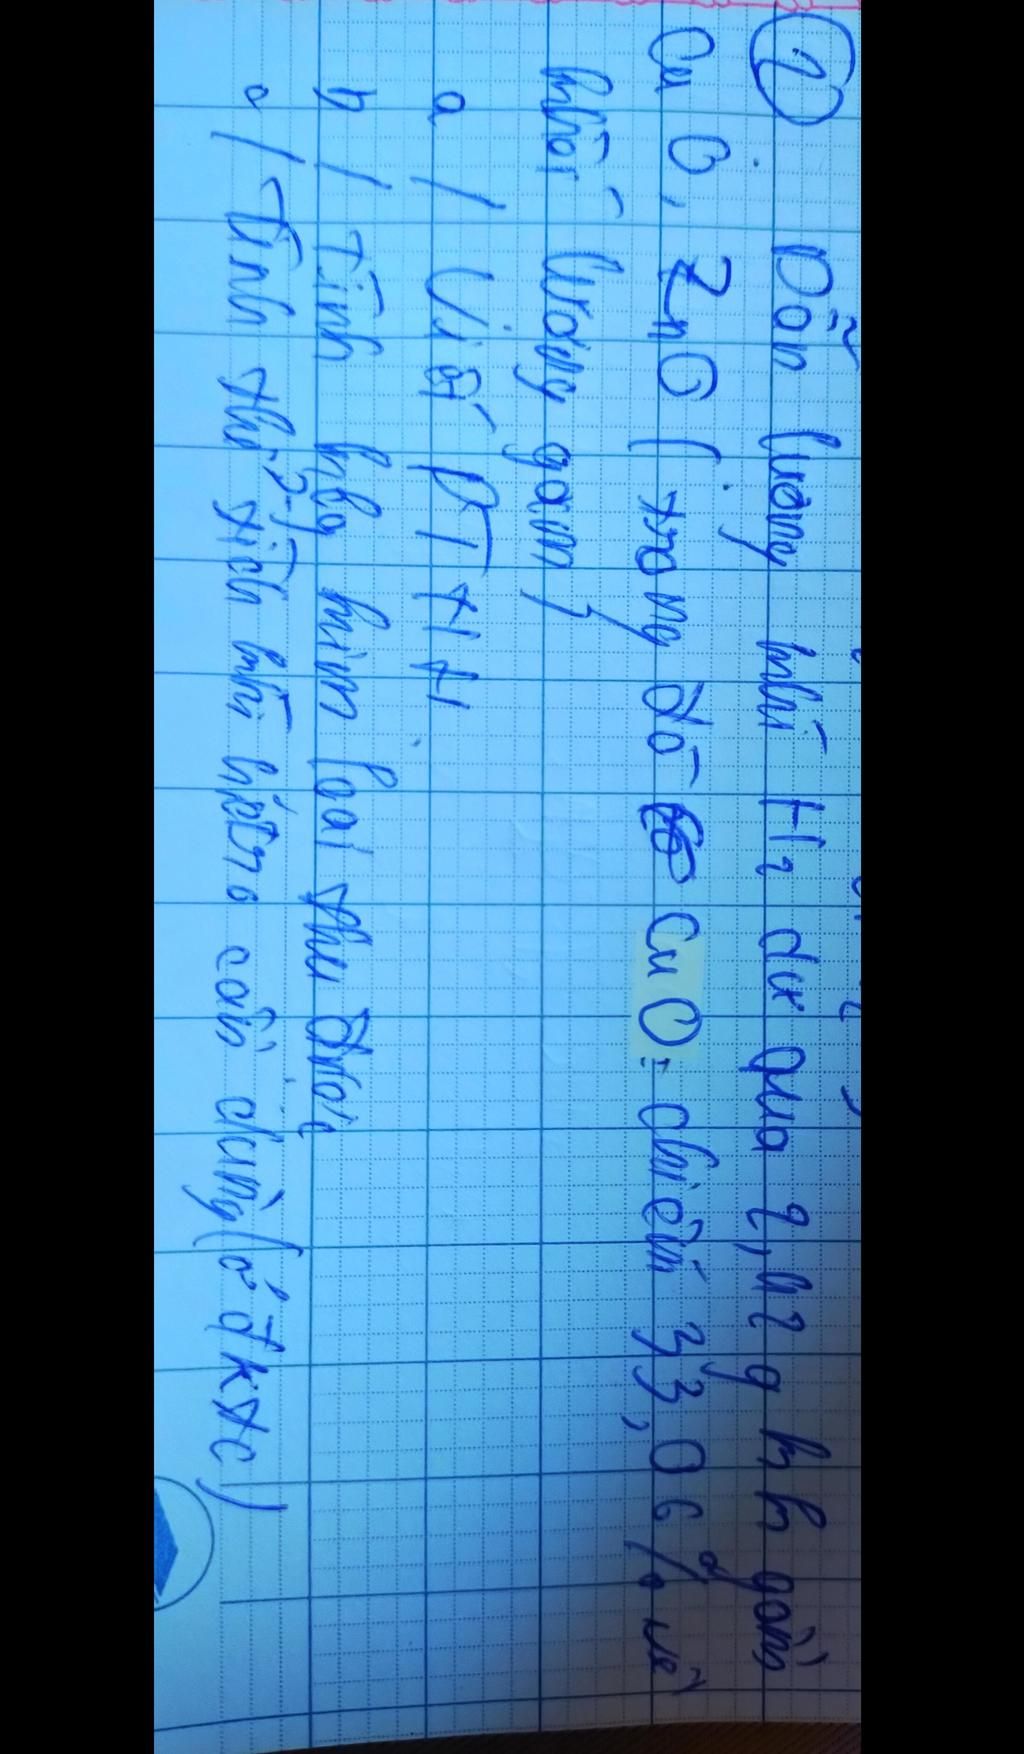 1 Dẫn lượng khí H2 dư qua 2,42 g hh gồm
CuO, ZnO ( trong đó CuO: chiếm 33,06 % về
khối lượng gam )
a / Viết PTHH
b / Tính klg kim loại thu được
c / Tính thể tích khí hiđro cần dùng ( ở đktc )